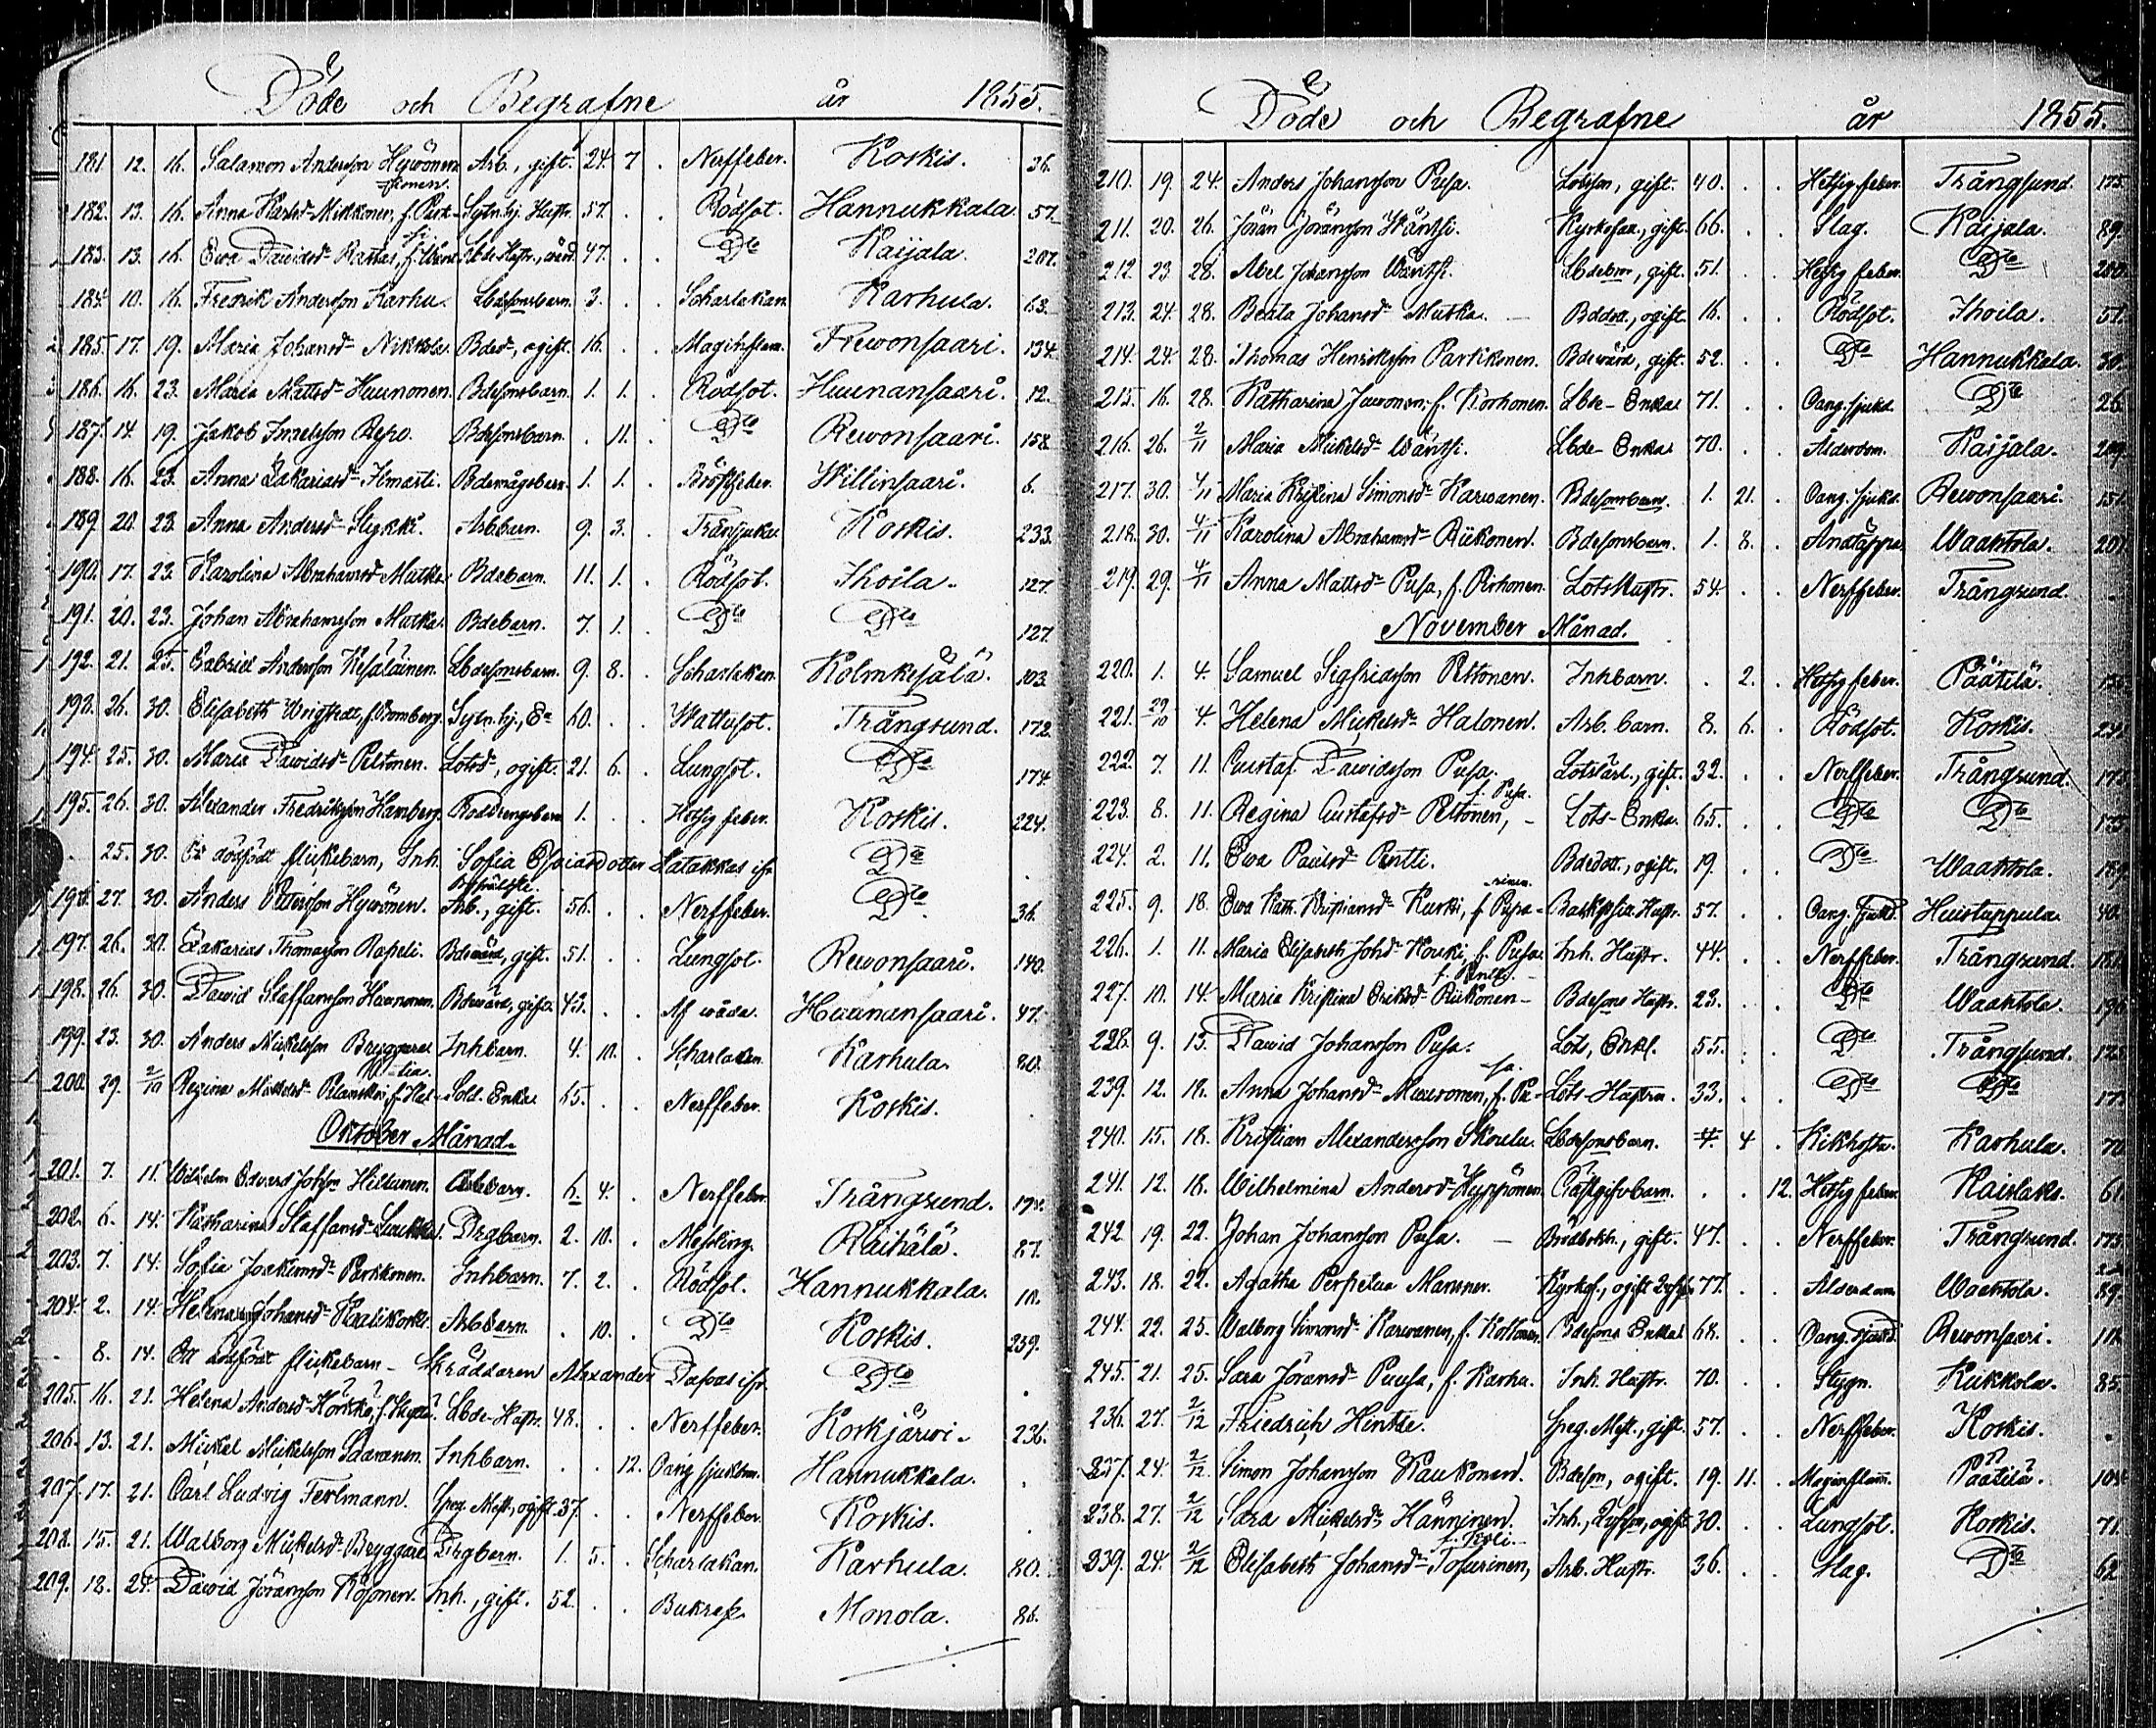 Döde och Begrafne år 1855.
181. 12. 16. Salamon Andersson Hyvönen Arb., gift. 24. 7. Nerffeber. Koskis. 36.
182. 13. 16. Anna Mikkonen, f. Hustr. 57. Rödsot. Hannukkala. 57.
183. 13. 16. Ewa Dawidsd. 47. Dto Kaijala. 207.
184. 10. 16. Fredrik Andersson Karhu. Lbdesonsbarn. 3. Scharlakan Karhula. 63.
185. 17. 19. Maria Johansd. Nikkola. Bded., ogift. 16. Maginflam. Rewonsaari. 134.
186. 16. 23. Maria Mattsd. Huunonen. Bdesonsbarn. 1. 1. Rödsot. Huunansaari. 12.
187. 14. 19. Jakob Repo. Bdesonsbarn. 11. Dto Rewonsaari. 158.
188. 16. 23. Anna Zakariasd. Bdemågsbarn. 1. 1. Bröstfeber. Willinsaari. 6.
189. 20. 23. Anna Andersd. Stykki. Arbbarn. 9. 3. Koskis. 233.
190. 17. 23. Karolina Abrahamsd. Matka. Bdebarn. 11. 1. Rödsot. Ihoila. 127.
191. 20. 23. Johan Abrahamsson Matka. Bdebarn. 7. 1. Dto Dto 127.
192. 21. 25. Gabriel Andersson Kesäläinen. Lbdesonsbarn. 9. 8. Scharlakan. Kolmikesälä. 103.
193. 26. 30. Elisabeth 60. Wattusot. Trångsund. 172.
194. 25. 30. Maria Dawidsd. Peltonen. Lotsd., ogift. 21. 6. Lungsot. Dto 174.
195. 26. 30. Alexander Fredriksson Hamberg. 1. Hetsig feber. Koskis. 224.
25. 30. Ett dödfödt flickebarn, Inh. Sofia Dto
196. 27. 30. Anders Pettersson Hyvönen. Arb., gift. 56. Nerffeber. Dto 36.
197. 26. 30. Zakarias Thomasson Rapeli. Bdewärd, gift. 51. Lungsot. Rewonsaari. 140.
198. 26. 30. Dawid Staffansson Huunonen. Bdewärd, gift. 43. Af wåda. Huunansaari. 47.
199. 23. 30. Anders Mickelsson Bryggare. Inhbarn. 4. 10. Scharlakan. Karhula. 80.
200. 29. 2/10 Regina Sold. Enka. 65. Nerffeber. Koskis.
Oktober Månad.
201. 7. 11. Wilhelm Edvard Johsson Hiltunen. Arbbarn. 6. 4. Nerffeber. Trångsund.
202. 6. 14. Katharina Staffansd. Laukka. Drgbarn. 2. 10. Mässling. Räihälä. 87.
203. 7. 14. Sofia Joakimsd. Parkkonen. Inhbarn. 7. 2. Rödsot. Hannukkala. 10.
204. 2. 14. Helena Johansd. Arbbarn. 10. Dto Koskis. 239.
8. 14. Ett dödfödt flickebarn – Skräddaren Alexander Dto
205. 16. 21. Helena Andersd. Hörkkö, f. Lbde-Hustr. 48. Nerffeber. Korkjärwi. 236.
206. 13. 21. Mickel Mickelsson Saavanen. Inhbarn. 12. Oang. sjukdom. Hannukkala.
207. 17. 21. Carl Ludvig Ferlmann. ogift. 37. Nerffeber. Koskis.
208. 15. 21. Walborg Mickelsd. Bryggare. Drgbarn. 1. 5. Scharlakan. Karhula. 80.
209. 18. 24. Dawid Jöransson Inh., gift. 52. Bukref. Monola. 86.
Döde och Begrafne år 1855.
210. 19. 24. Anders Johansson Pusa. Lotsson, gift. 40. Hetsig feber. Trångsund. 175.
211. 20. 26. Jöran Jöransson Wäntsi. gift. 66. Slag. Kaijala. 89.
212. 23. 28. Abel Johansson Wäntsi. gift. 51. Hetsig feber. Dto 200.
213. 24. 28. Beata Johansd. Mutka. Bddott., ogift. 16. Rödsot. Ihoila. 51.
214. 24. 28. Thomas Henriksson Parkkonen. Bdewärd, gift. 52. Dto Hannukkala. 30.
215. 16. 28. Katharina Juvonen, f. Korhonen. Lbde-Enka 71. Oang. sjukd. Dto 26.
216. 26. 2/11 Maria Mickelsd. Wäntsi. Lbde-Enka 70. Ålderdom. Kaijala. 209.
217. 30. 4/11 Maria Kristina Simonsd. Karvanen. Bdesonsbarn. 1. 21. Oang. sjukd. Rewonsaari. 151.
218. 30. 4/11 Karolina Abrahamsd. Riikonen. Bdesonsbarn. 1. 8. Andtäppa. Waahtola. 201.
219. 29. 4/11 Anna Mattsd. Pusa, f. Pirhonen. Lots Hustr. 54. Nerffeber. Trångsund.
November Månad.
220. 1. 4. Samuel Sigfridsson Peltonen. Inhbarn. 2. Hetsig feber. Päätilä.
221. 29/10 4. Helena Mickelsd. Halonen. Arb. barn. 8. 6. Rödsot. Koskis.
222. 7. 11. Gustaf Dawidsson Pusa. Lotslärl., gift. 32. Nerffeber. Trångsund. 175.
223. 8. 11. Regina Gustafsd. Peltonen, f. Pusa. Lots-Enka. 65. Dto Dto 175.
224. 2. 11. Ewa Paulsd. Pentti. Bdedott., ogift. 19. Dto Waahtola. 189.
225. 9. 18. Ewa Kath. Kristiansd. Kurki, f. Hustr. 57. Oang. sjukd. Huistuppula. 40.
226. 1. 11. Maria Elisabeth Johd. Kouki, f. Pusa. Inh. Hustr. 44. Nerffeber. Trångsund. 181.
227. 10. 14. Maria Kristina Eriksd. Riikonen – f. Pentti. Bdesons Hustr. 23. Dto Waahtola. 196.
228. 9. 13. Dawid Johansson Pusa. Lots, Enkl. 55. Dto Trångsund. 175.
239. 12. 18. Anna Johansd. Muuronen, f. Pusa. Lots-Hustru. 33. Dto Dto 17.
240. 15. 18. Kristian Alexandersson Skoulu. Lbdesonsbarn. 4. 4. Kikhosta. Karhula. 70.
241. 12. 18. Wilhelmina Andersd. Hyppönen Gästgifvbarn. 12. Hetsig feber. Kaislaks. 61.
242. 19. 22. Johan Johansson Pusa. gift. 47. Nerffeber. Trångsund. 175.
243. 18. 22. Agatha Perpetua Mansner. ogift 77. Ålderdom Waahtola. 89.
244. 22. 25. Walborg Simonsd. Karvanen, f. Bdesons Enka 68. Oang. sjukd. Rewonsaari. 112.
245. 21. 25. Sara Jöransd. Puusa, f. Karhu. Inh. Hustr. 70. Stygn. Kukkola. 85.
236. 27. 2/12 Friedrich Hintze. gift. 57. Nerffeber. Koskis.
237. 24. 2/12 Simon Johansson Kaukonen. Bdeson, ogift. 19. 11. Maginflam. Päätilä. 104.
238. 27. 2/12 Sara Mickelsd. Hänninen. Inh., ogift 30. Lungsot. Koskis. 71.
239. 24. 2/12 Elisabeth Johansd. Tosurinen, f. Koli. Arb. Hustr. 36. Slag. Dto 62.